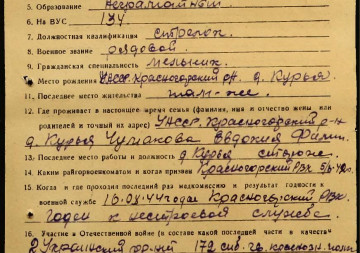 5. Образование неграмотный
6. На ВУС 134
7. Должностная квалификация стрелок
8. Военное звание рядовой
9. Гражданская специальность мельник
Место рождения УАССР Красногорский р-н. д. Курья
11. Последнее место жительства там-же
12. Где проживает в настоящее время семья (фамилия, имя и отчество жены или
родителей и точный их адрес) УАССР. Красногорский р-н
д. Курья Чумакова Евдокия Филип.
13. Последнее место работы и должность д. Курья
14. Каким райгорвоенкоматом и когда призван Красногорский РВК
15. Когда и где проходил последний раз медкомиссию и результат годности к
военной службе 16.08.44 года Красногорский РВК
годен к нестроевой службе
16. Участие в Отечественной войне (в составе какой последней части и в качестве
2 Украинский фронт 172